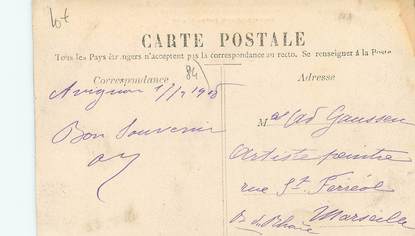 lot
CARTE POSTALE
Tous les Pays étrangers n'acceptent pas la correspondance au recto. Se renseigner à la Poste
84
Correspondance
Adresse
Avignon 1908
Bon Souvenir
Gaussen
Artiste peintre
rue St. Ferréol
Marseille